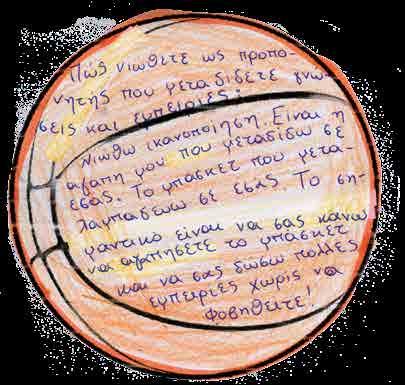 Πώς νιώθετε ως προπο-
νητής που μεταδίδετε γνώ-
σεις και εμπειρίες;
Νιώθω ικανοποίηση. Είναι η
αγάπη μου που μεταδίδω σε
εσάς. Το μπάσκετ που μετα-
λαμπαδεύω σε εσάς. Το ση-
μαντικό είναι να σας κάνω
να αγαπήσετε το μπάσκετ
και να σας δώσω πολλές
εμπειρίες χωρίς να
φοβηθείτε!